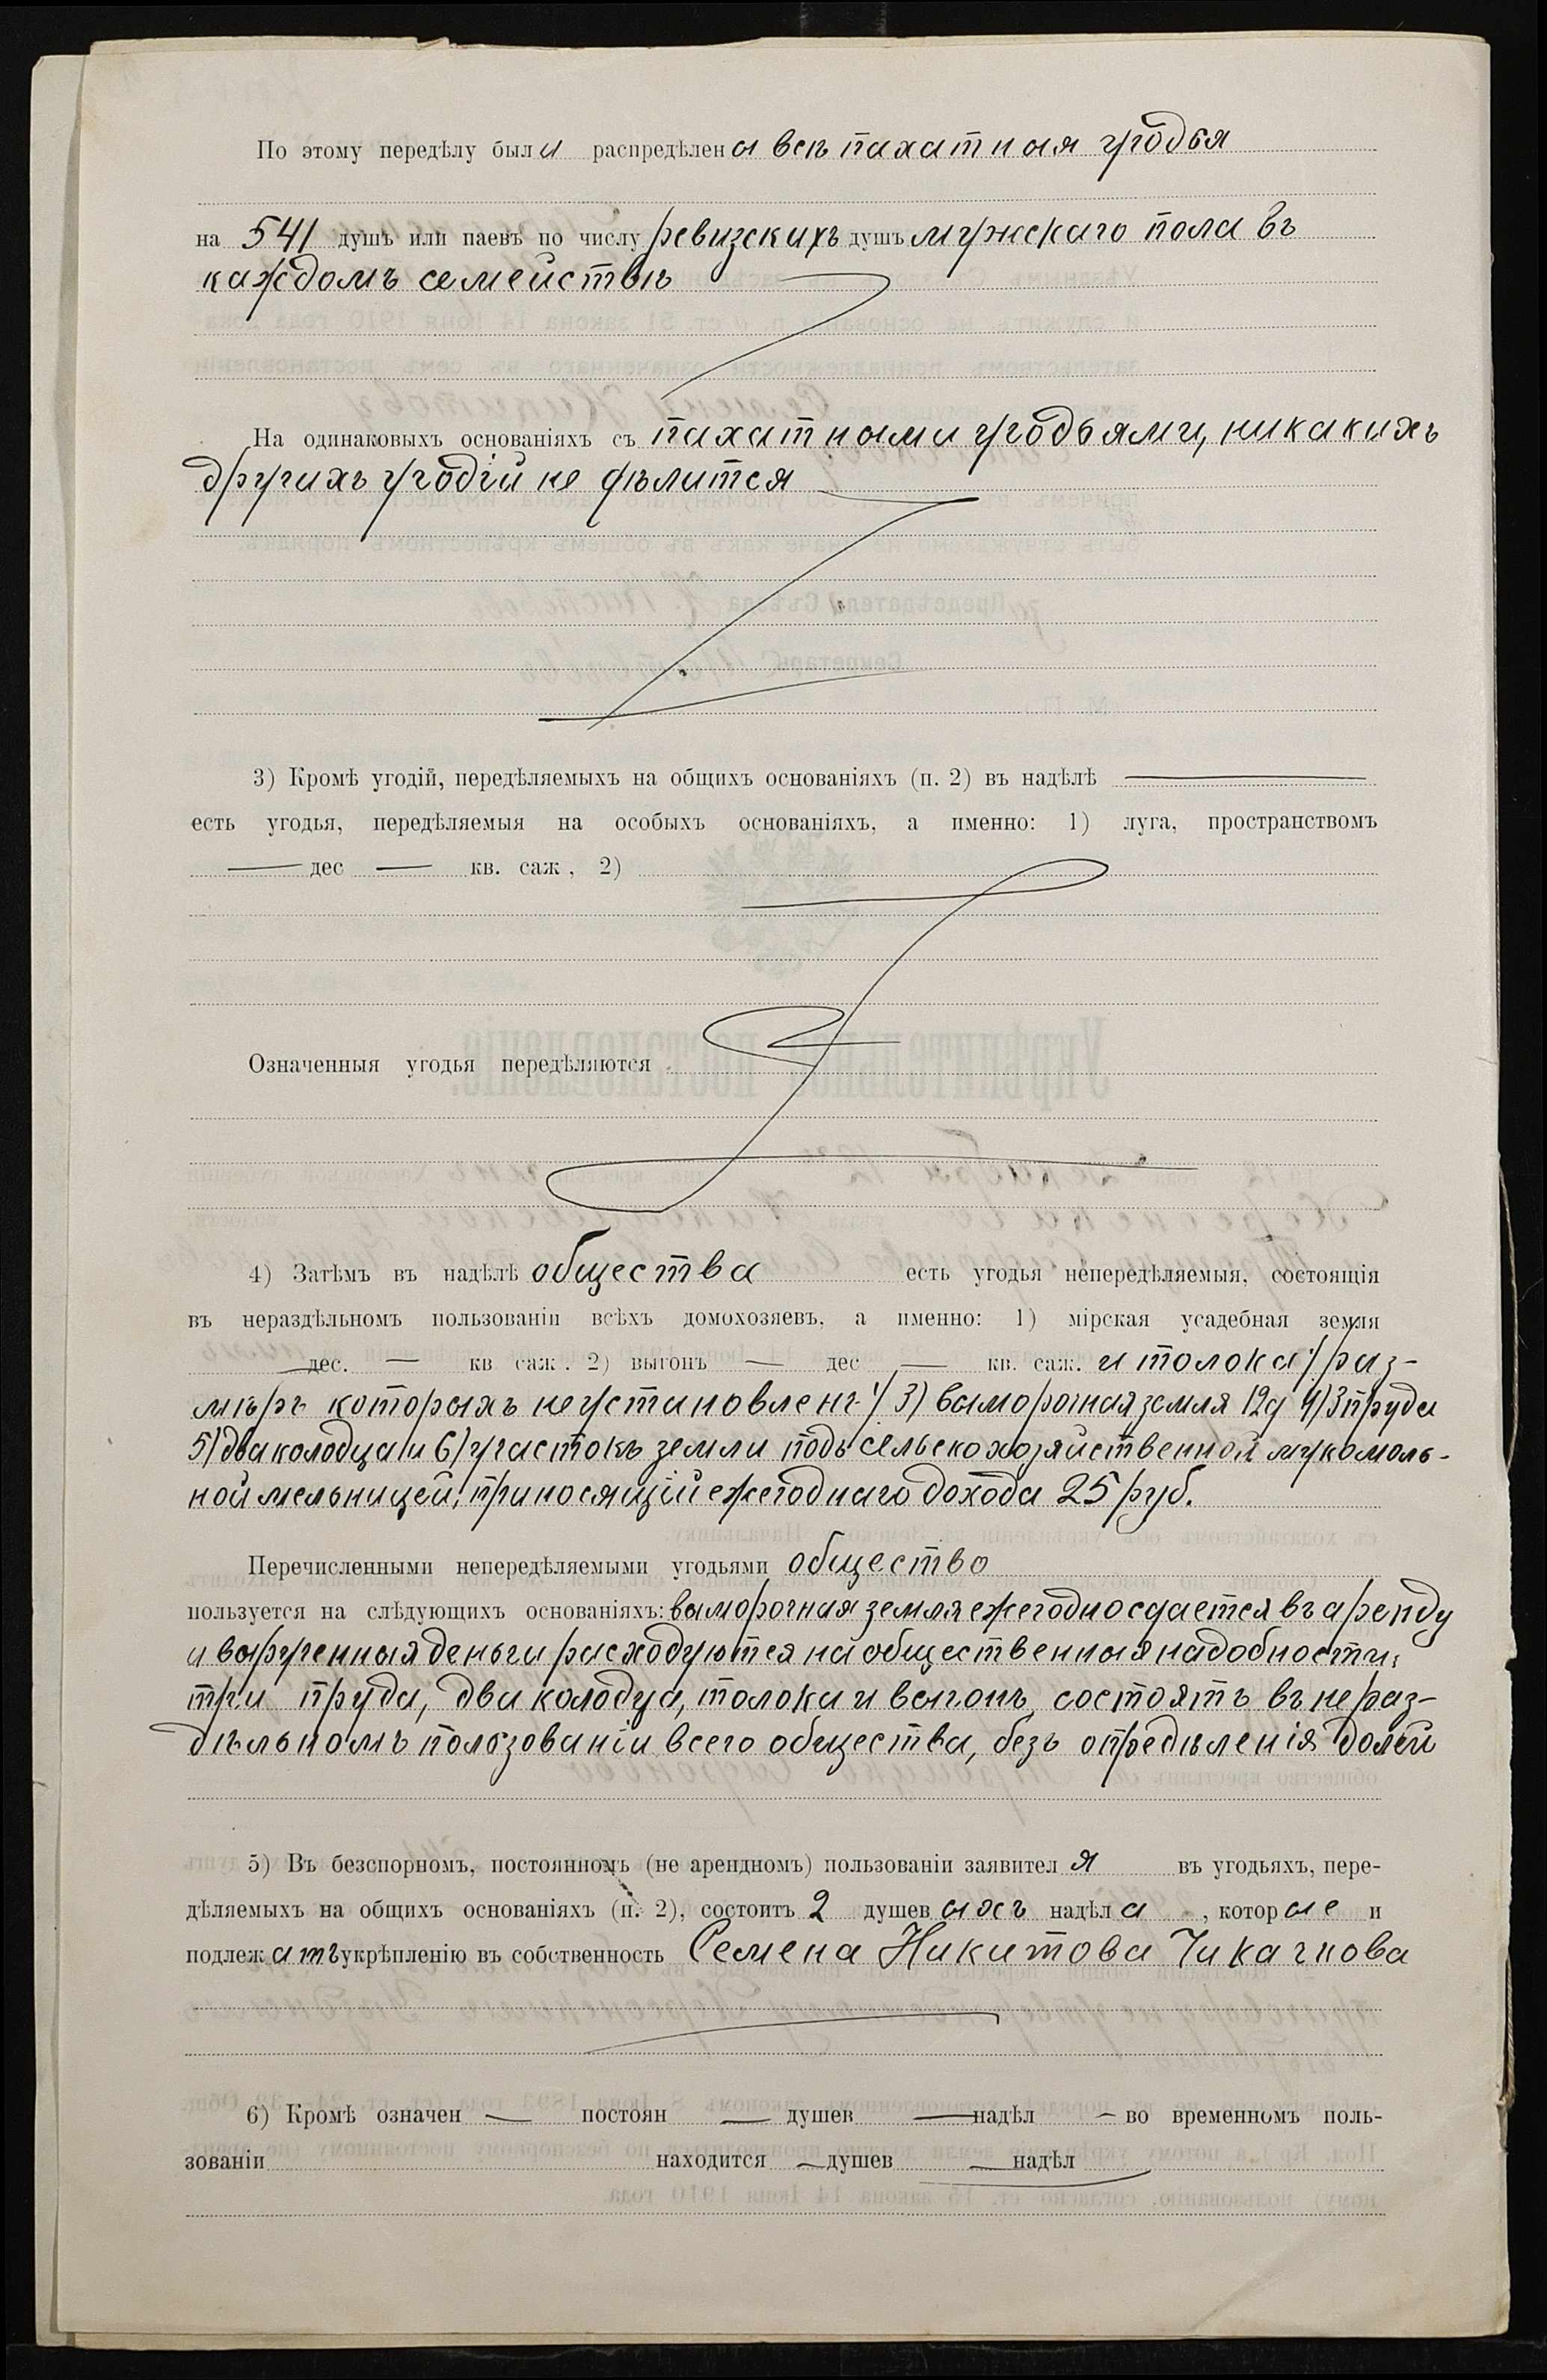 По этому передѣлу были распредѣлены всѣ пахатныя угодья
на 541 душъ или паевъ по числу ревизскихъ душъ мужскаго пола въ
каждомъ семействѣ
На одинаковыхъ основаніяхъ съ пахатными угодьями, никакихъ
другихъ угодій не дѣлится
3) Кромѣ угодій, передѣляемыхъ на общихъ основаніяхъ (п. 2) въ надѣлѣ —
есть угодья, передѣляемыя на особыхъ основаніяхъ, а именно: 1) луга, пространствомъ
— дес — кв. саж, 2)
Означенныя угодья передѣляются
4) Затѣмъ въ надѣлѣ общества есть угодья непередѣляемыя, состоящія
въ нераздѣльномъ пользованіи всѣхъ домохозяевъ, а именно: 1) мірская усадебная земля
— дес. — кв саж. 2) выгонъ — дес — кв. саж. и толока / раз-
мѣръ которыхъ не установленъ / 3) выморочная земля 12 д 4) 3 пруда
5) два колодца и 6) участокъ земли подъ сельскохозяйственной мукомоль-
ной мельницей, приносящій ежегоднаго дохода 25 руб.
Перечисленными непередѣляемыми угодьями общество
пользуется на слѣдующихъ основаніяхъ: выморочная земля ежегодно сдается въ аренду
и вырученныя деньги расходуются на общественныя надобности,
три пруда, два колодца, толока и выгонъ состоятъ въ нераз-
дѣльномъ пользованіи всего общества, безъ опредѣленія долей
5) Въ безспорномъ, постоянномъ (не арендномъ) пользованіи заявителя въ угодьяхъ, пере-
дѣляемыхъ на общихъ основаніяхъ (п. 2), состоитъ 2 душевыхъ надѣла, которые и
подлежатъ укрѣпленію въ собственность Семена Никитова Чикачкова
6) Кромѣ означен — постоян — душев — надѣл — во временномъ поль-
зованіи находится — душев — надѣл